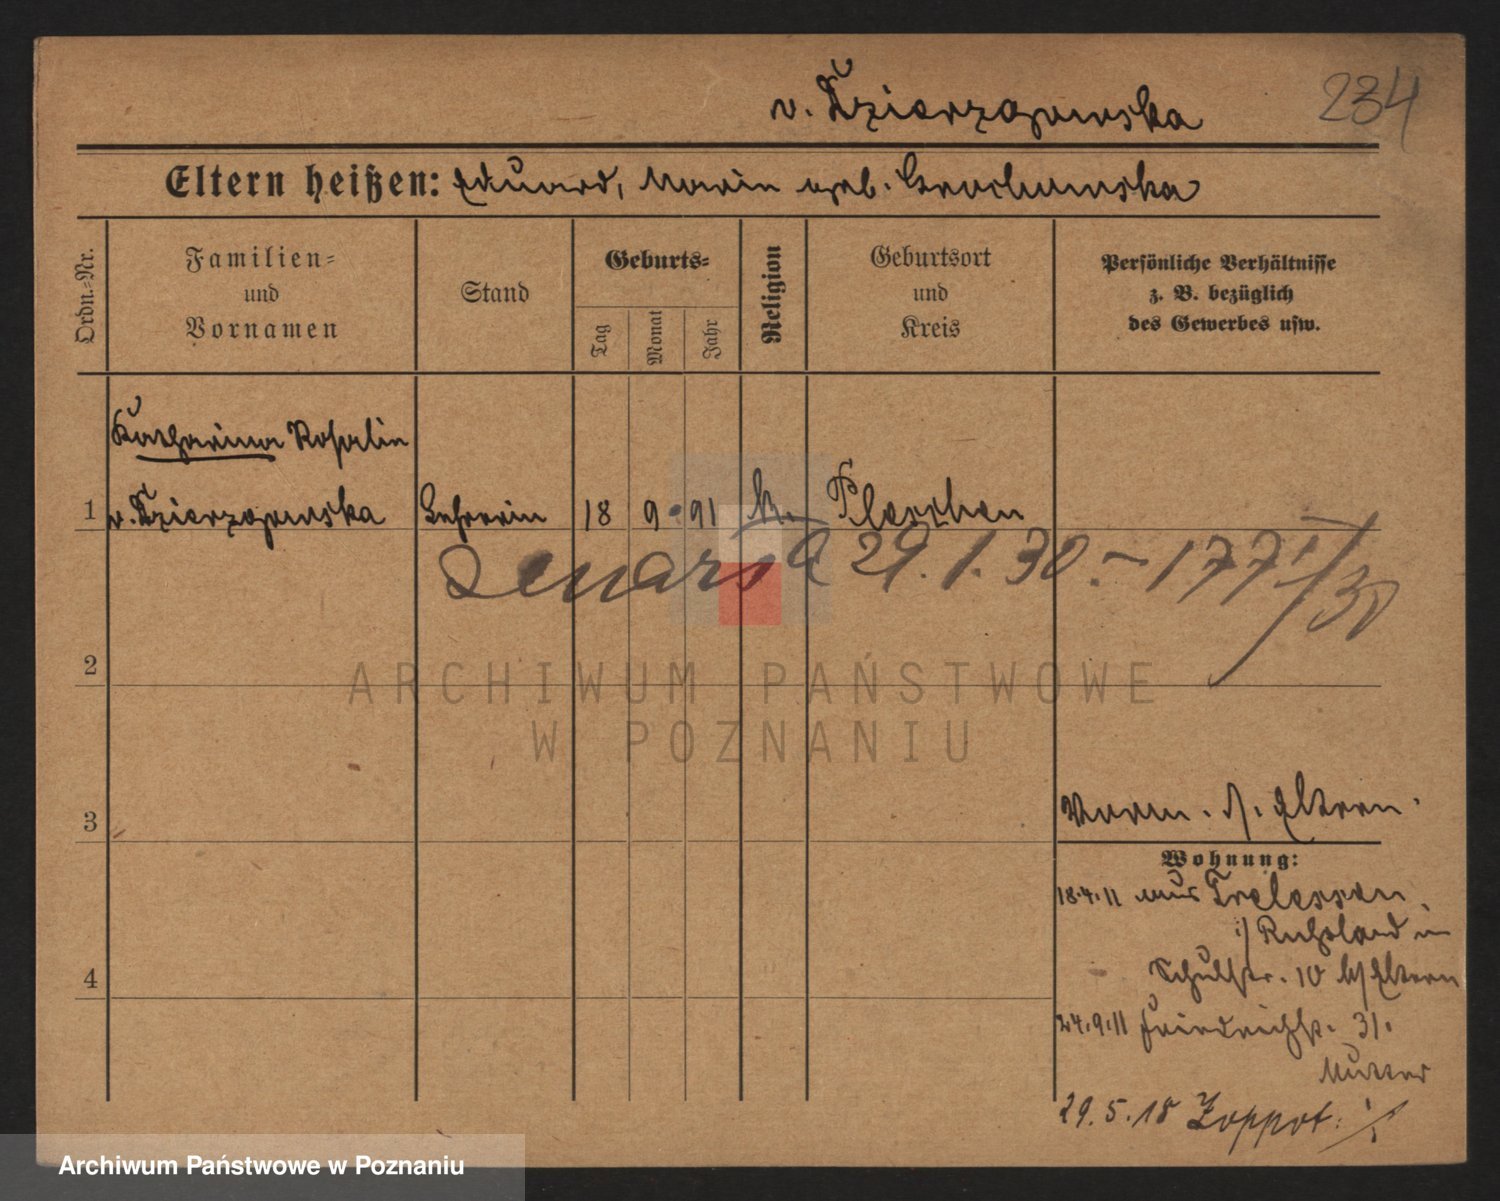 v. Dzierzgowska
234
Eltern heißen: Eduard, Maria geb. Grochowska
Ordn.-Nr.
Familien-
und
Vornamen
Stand
Geburts-
Tag
Monat
Jahr
Religion
Geburtsort
und
Kreis
Persönliche Verhältnisse
z. B. bezüglich
des Gewerbes usw.
Katharina Rosalie
1 v. Dzierzgowska Lehrerin 18 9. 91 k. Pleschen
29.1.30.-177 I/30
2
ARCHIWUM PAŃSTWOWE
W POZNANIU
3
Verm. s. Eltern.
Wohnung:
18.4.11 aus Tremessen
Rußland in
4 Schulstr. 10 b/ Eltern
24.9.11 Friedrichstr. 31.
Mutter
29.5.18 Zoppot.
Archiwum Państwowe w Poznaniu